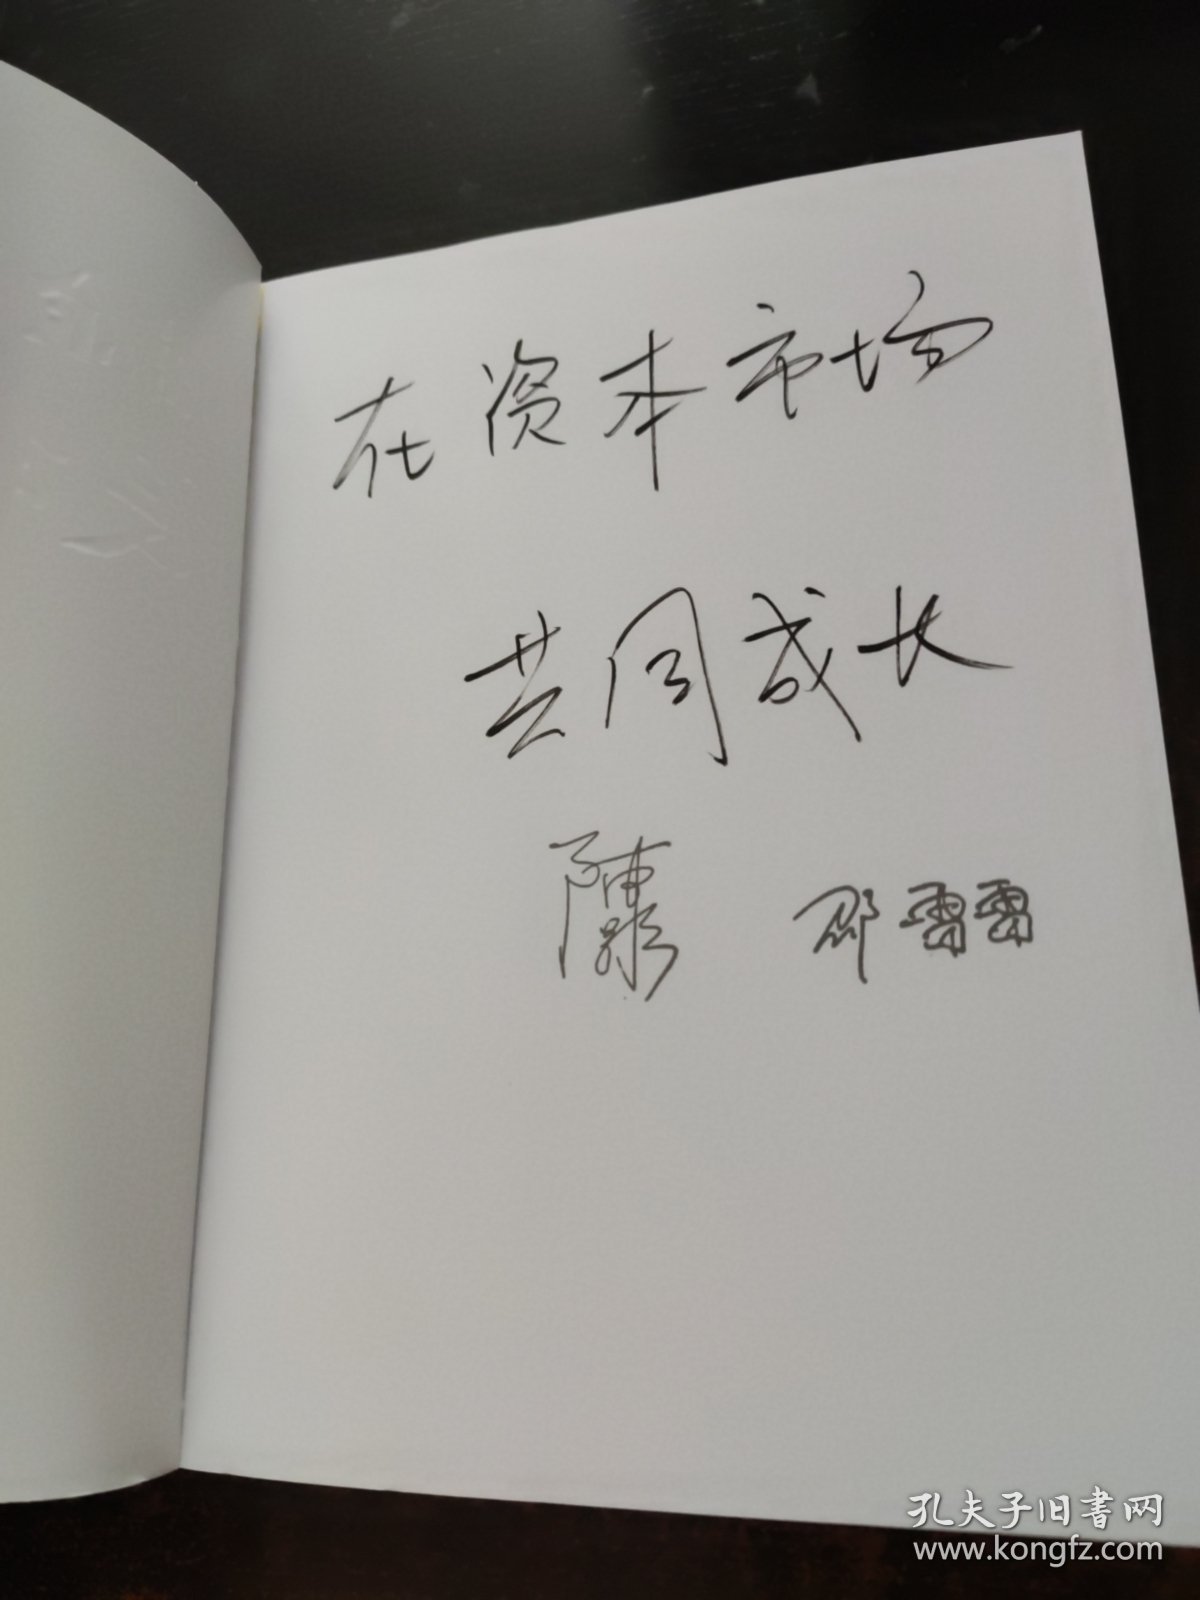 在资本市场
共同成长
陳 邵雷雷
孔夫子旧書网
www.kongfz.com